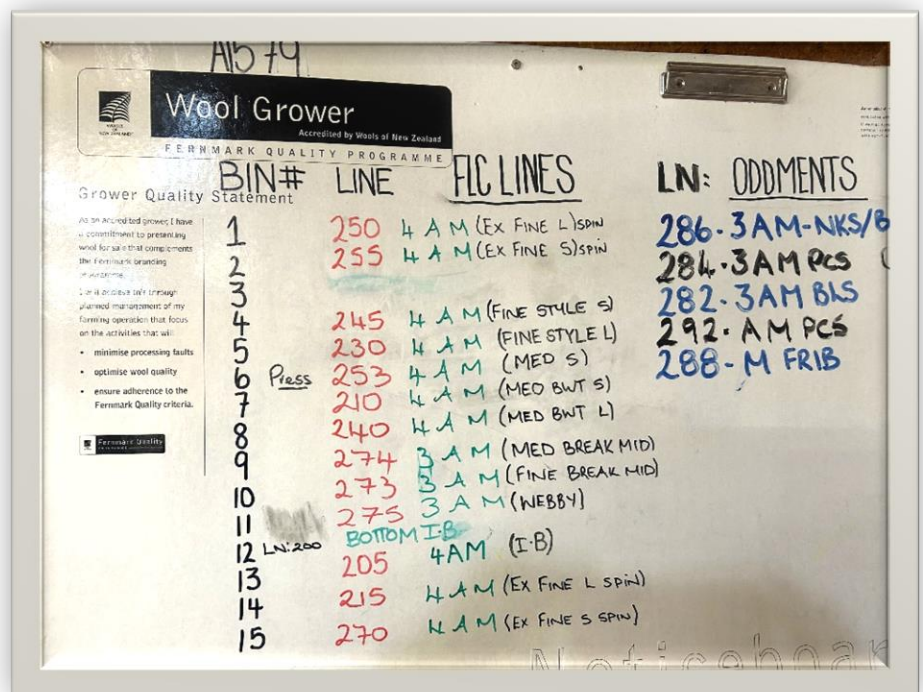 A1574
WOOLS OF NEW ZEALAND
Wool Grower
Accredited by Wools of New Zealand
FERNMARK QUALITY PROGRAMME
Grower Quality Statement
As an accredited grower, I have
a commitment to presenting
wool for sale that complements
the Fernmark branding
programme.
through
planned management of my
farming operation that focus
on the activities that will
• minimise processing faults
• optimise wool quality
• ensure adherence to the
Fernmark Quality criteria.
Fernmark Quality
BIN# LINE FLC LINES
1 250 4 AM (EX FINE L) SPIN
2 255 4 AM (EX FINE S) SPIN
3
4 245 4 AM (FINE STYLE S)
5 230 4 AM (FINE STYLE L)
6 Press 253 4 AM (MED S)
7 210 4 AM (MED BWT S)
8 240 4 AM (MED BWT L)
9 274 3 AM (MED BREAK MID)
10 273 3 AM (FINE BREAK MID)
11 275 3 AM (WEBBY)
BOTTOM I-B
12 LN:200 205 4AM (I-B)
13 215 4 AM (EX FINE L SPIN)
14
15 270 4 AM (EX FINE S SPIN)
LN: ODDMENTS
286-3AM-NKS/B
284-3AM PCS (
282-3AM BLS
292- AM PCS
288- M FRIB
Noticeboar